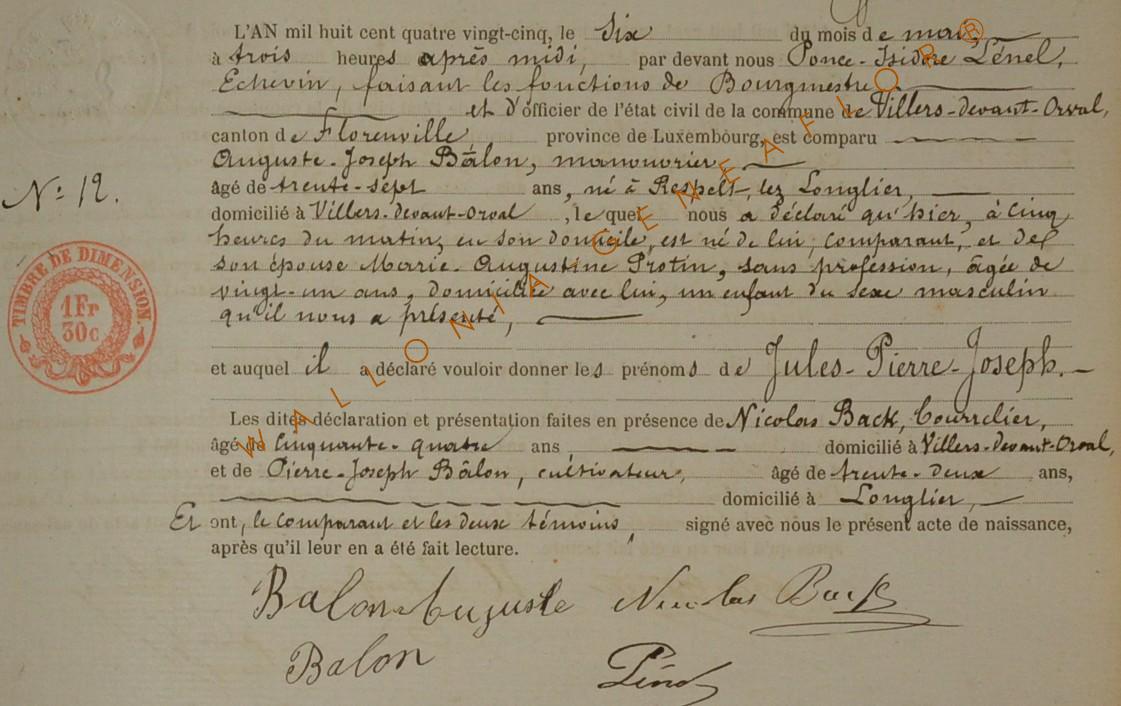 L'AN mil huit cent quatre vingt-cinq, le six du mois de mars
à trois heures après midi, par devant nous Ponce-Isidore Lénel,
Echevin, faisant les fonctions de Bourgmestre
et d'officier de l'état civil de la commune de Villers-devant-Orval,
canton de Florenville, province de Luxembourg, est comparu
Auguste-Joseph Bâlon, manouvrier
âgé de trente-sept ans, né à Respelt-lez Longlier,
N° 12.
domicilié à Villers-devant-Orval, lequel nous a déclaré qu'hier, à cinq
heures du matin, en son domicile, est né de lui, comparant, et de
son épouse Marie-Augustine Protin, sans profession, âgée de
vingt-un ans, domiciliée avec lui, un enfant du sexe masculin
qu'il nous a présenté,
TIMBRE DE DIMENSION.
1Fr
30c
et auquel il a déclaré vouloir donner les prénoms de Jules-Pierre-Joseph.
Les dites déclaration et présentation faites en présence de Nicolas Back, Bourrelier,
âgé de cinquante-quatre ans, domicilié à Villers-devant-Orval,
et de Pierre-Joseph Bâlon, cultivateur, âgé de trente-deux ans,
domicilié à Longlier,
Et ont, le comparant et les deux témoins, signé avec nous le présent acte de naissance,
après qu'il leur en a été fait lecture.
Balon Auguste Nicolas Back
Balon
WALLONIA GENEAFLOR®